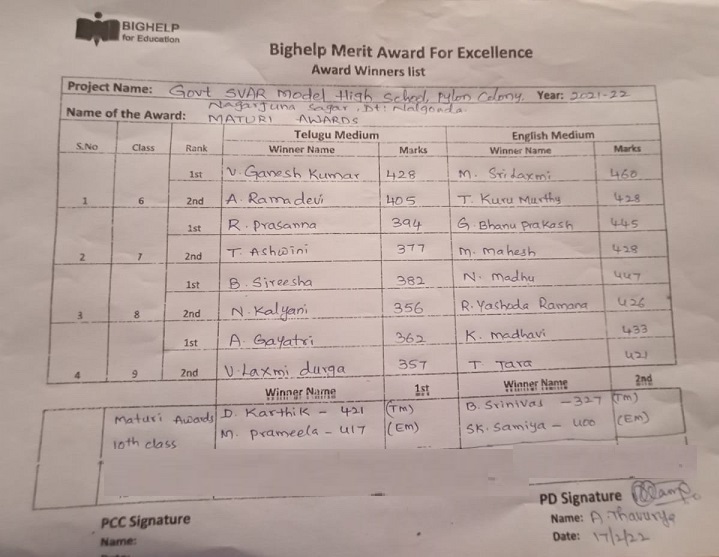 BIGHELP
for Education
Bighelp Merit Award For Excellence
Award Winners list
Project Name: Govt SVAR Model High School, Pylon Colony. Year: 2021-22
Nagarjuna Sagar, Dt: Nalgonda
Name of the Award: MATURI AWARDS
Telugu Medium English Medium
S.No Class Rank Winner Name Marks Winner Name Marks
1st V. Ganesh Kumar 428 M. Sri Laxmi 460
1 6 2nd A. Ramadevi 405 T. Kuru Murthy 428
1st R. Prasanna 394 G. Bhanu Prakash 445
2 7 2nd T. Ashwini 377 M. Mahesh 428
1st B. Sireesha 382 N. Madhu 447
3 8 2nd N. Kalyani 356 R. Yashoda Ramana 426
1st A. Gayatri 362 K. Madhavi 433
4 9 2nd V. Laxmi durga 357 T. Tara 421
Winner Name 1st Winner Name 2nd
Maturi Awards D. Karthik - 421 (TM) B. Srinivas - 327 (TM)
10th class M. Prameela - 417 (EM) SK. Samiya - 400 (EM)
PD Signature
PCC Signature Name: A.
Name: Date: 17/2/22